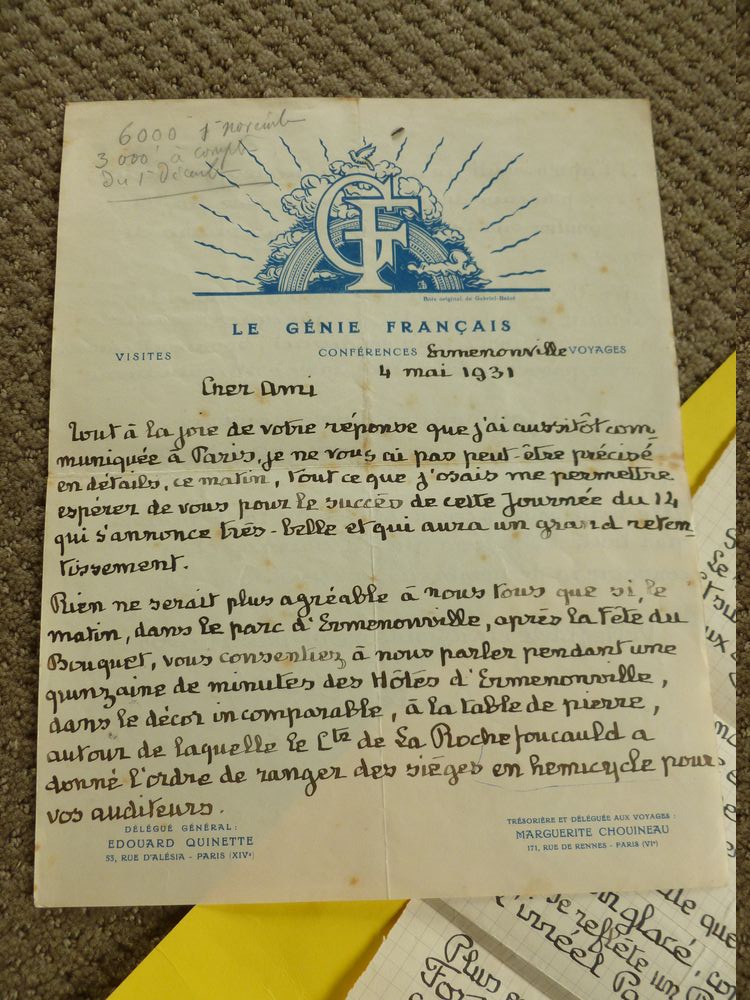 6000 1er novembre
3000 à compte
Du 1er Décembre
GF
Bois original de Gabriel-Belot
LE GÉNIE FRANÇAIS
VISITES CONFÉRENCES Ermenonville VOYAGES
4 mai 1931
Cher Ami
Tout à la joie de votre réponse que j'ai aussitôt com
muniquée à Paris, je ne vous ai pas peut-être précisé
en détails, ce matin, tout ce que j'osais me permettre
espérer de vous pour le succès de cette Journée du 14
qui s'annonce très-belle et qui aura un grand reten
tissement.
Rien ne serait plus agréable à nous tous que si, le
matin, dans le parc d'Ermenonville, après la Fête du
Bouquet, vous consentiez à nous parler pendant une
quinzaine de minutes des Hôtes d'Ermenonville,
dans le décor incomparable, à la table de pierre,
autour de laquelle le Cte de La Rochefoucauld a
donné l'ordre de ranger des sièges en hemicycle pour
vos auditeurs.
DÉLÉGUÉ GÉNÉRAL :
EDOUARD QUINETTE
53, RUE D'ALÉSIA - PARIS (XIVe)
TRÉSORIÈRE ET DÉLÉGUÉE AUX VOYAGES :
MARGUERITE CHOUINEAU
171, RUE DE RENNES - PARIS (VIe)
que
glacé, co
se reflète un
l'irréel
Plus